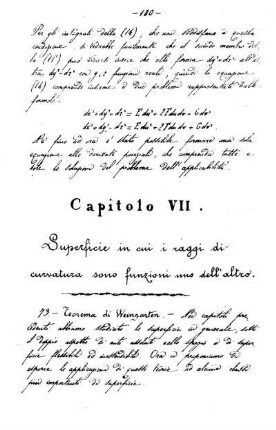 — 180 —
Per gli integrali della (16), che non soddisfano a quella
condizione si vedrebbe facilmente che il secondo membro del-
la (15') può
(16) comprende insieme i due problemi rappresentati dalle
formole:
dx² + dy² + dz² = E du² + 2F du dv + G dv²
dx² + dy² - dz² = E du² + 2F du dv + G dv².
Nè fino ad ora è stato possibile formare una sola
equazione alle derivate parziali che comprenda tutte e
sole le soluzioni del problema dell'applicabilità.
Capitolo VII.
Superficie in cui i raggi di
curvatura sono funzioni uno dell'altro.
73 - Teorema di Weingarten. - Nei capitoli pre-
cedenti abbiamo studiato le superficie in generale, sotto
il doppio aspetto di enti esistenti nello spazio e di super-
ficie flessibili ed inestendibili. Ora ci proponiamo di
esporre le applicazioni di queste teorie ad alcune classi
più importanti di superficie.